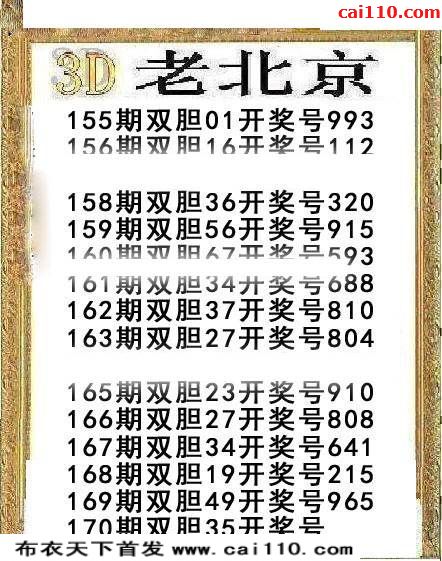 cai110.com
3D 老北京
155期双胆01开奖号993
156期双胆16开奖号112
158期双胆36开奖号320
159期双胆56开奖号915
160期双胆67开奖号593
161期双胆34开奖号688
162期双胆37开奖号810
163期双胆27开奖号804
165期双胆23开奖号910
166期双胆27开奖号808
167期双胆34开奖号641
168期双胆19开奖号215
169期双胆49开奖号965
170期双胆35开奖号
布衣天下首发 www.cai110.com